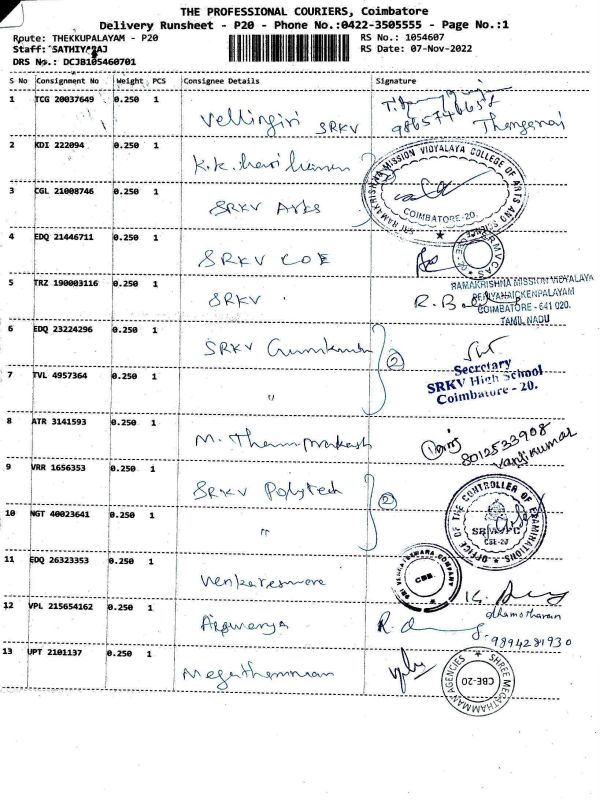 THE PROFESSIONAL COURIERS, Coimbatore
Delivery Runsheet - P20 - Phone No.:0422-3505555 - Page No.:1
Route: THEKKUPALAYAM - P20
RS No.: 1054607
Staff: SATHIYARAJ
RS Date: 07-Nov-2022
DRS No.: DCJB105460701
S No Consignment No Weight PCS Consignee Details Signature
1 TCG 20037649 0.250 1 Vellingiri SRKV
9865746657
2 KDI 222094 0.250 1 K.K. hari
SRI RAMAKRISHNA MISSION VIDYALAYA COLLEGE OF ARTS AND SCIENCE
COIMBATORE-20.
3 CGL 21008746 0.250 1 SRKV Arts
4 EDQ 21446711 0.250 1 SRKV COE
SRMVCAS
5 TRZ 190003116 0.250 1 SRKV
R.
RAMAKRISHNA MISSION VIDYALAYA
PERIYANAICKENPALAYAM
COIMBATORE - 641 020.
TAMIL NADU
6 EDQ 23224296 0.250 1 SRKV
②
Secretary
SRKV High School
Coimbatore - 20.
7 TVL 4957364 0.250 1 "
8 ATR 3141593 0.250 1 M.
8012533908
9 VRR 1656353 0.250 1 SRKV Polytech
②
OFFICE OF THE CONTROLLER OF EXAMINATIONS
CBE-20
10 NGT 40023641 0.250 1 "
11 EDQ 26323353 0.250 1
SRI VENKATESWARA COMPANY
CBE
12 VPL 215654162 0.250 1
R.
dhamotharan
9894281930
13 UPT 2101137 0.250 1
SHREE MEGATHAMMAN AGENCIES
CBE-20